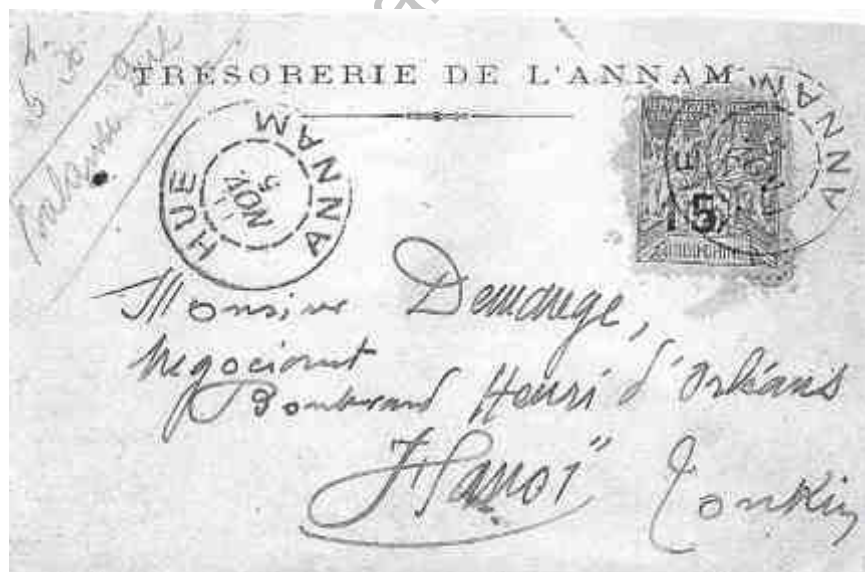 TRÉSORERIE DE L'ANNAM
HUE ANNAM
5
NOV.
ANNAM
5
Monsieur Demange,
Negociant
Boulevard Henri d'Orléans
"Hanoï"
Tonkin